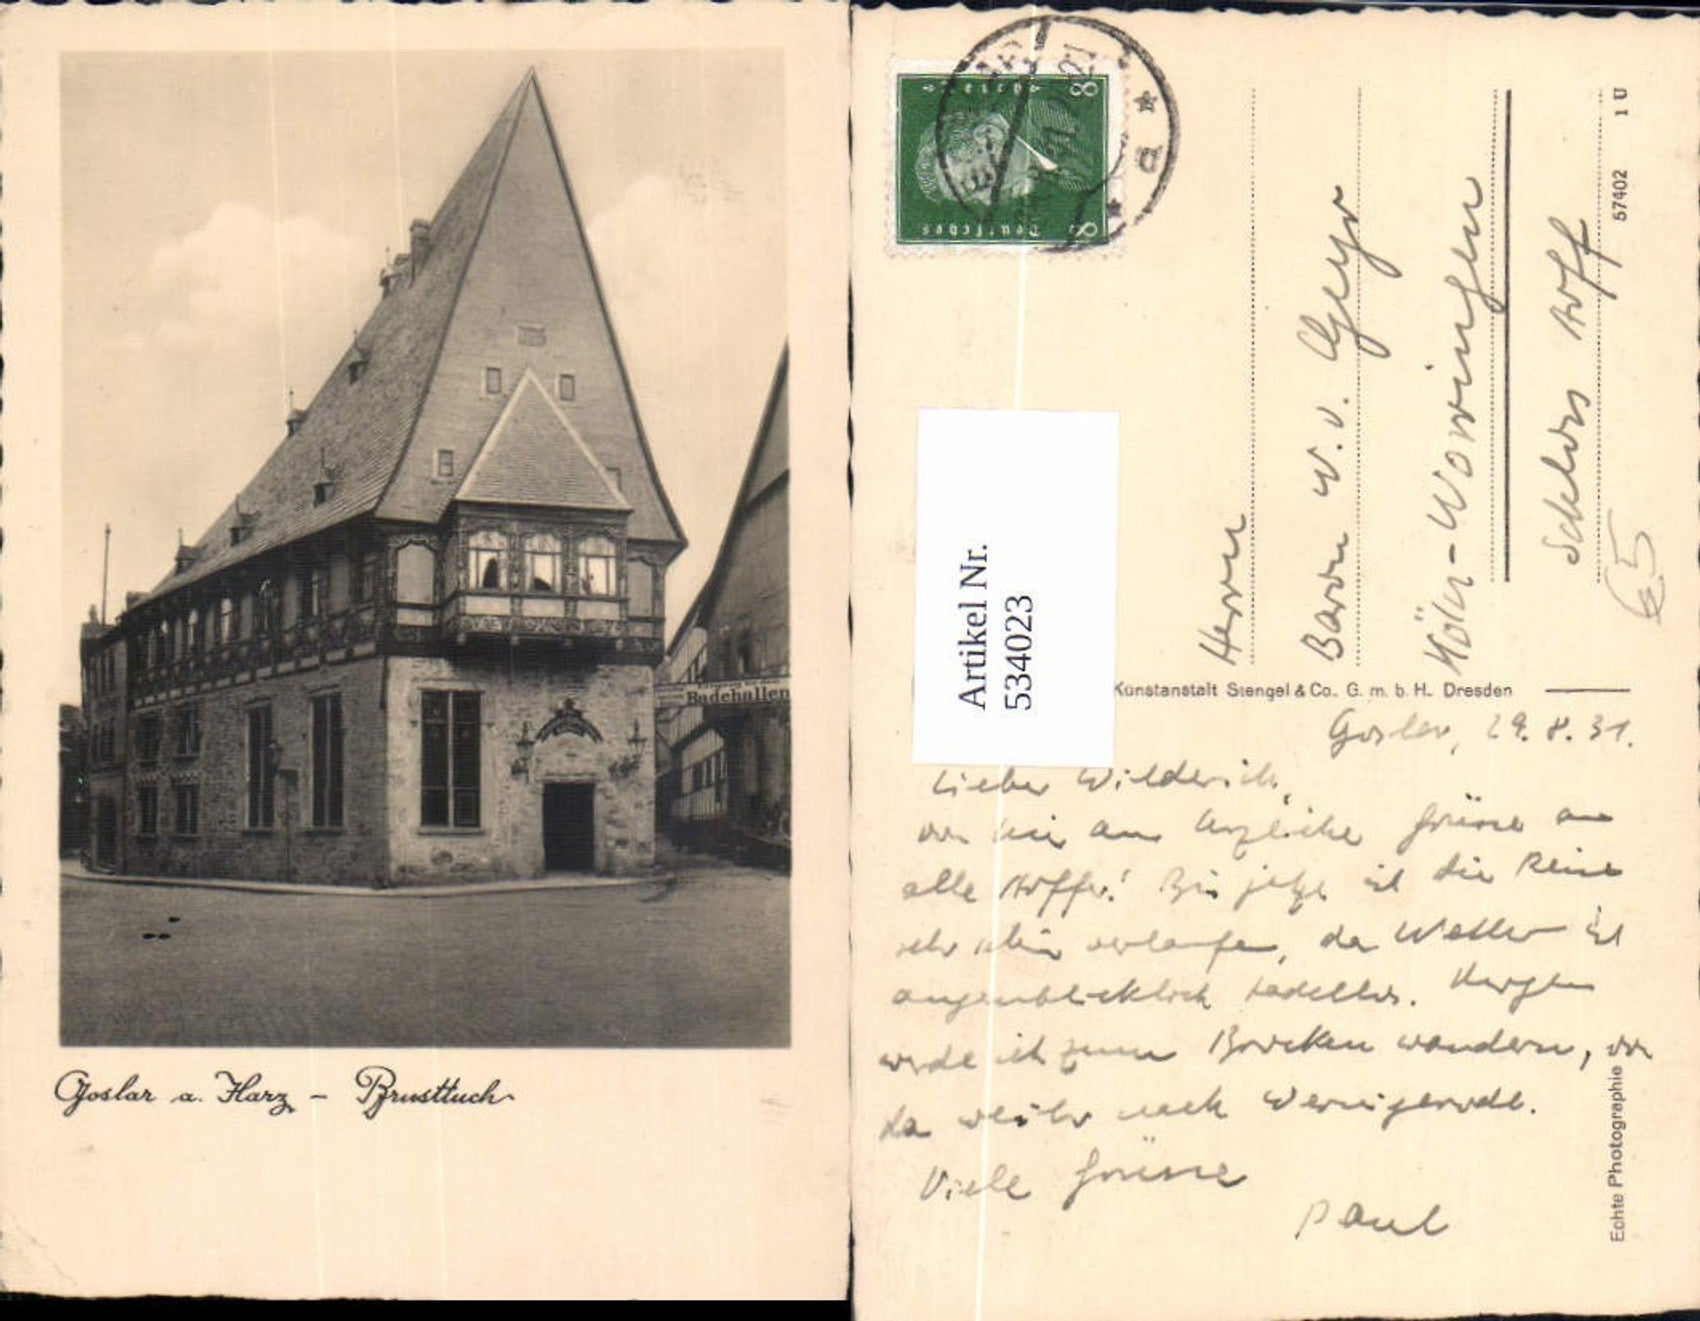 Badehallen
Goslar a. Harz - Brusttuch
8 8
Deutsches
Artikel Nr.
534023
Herrn
Baron W. v. Geyr
Köln-Worringen
Schloss Arff
65
57402 1 U
Kunstanstalt Stengel & Co. G. m. b. H. Dresden
Echte Photographie
Goslar, 29. 8. 31.
Lieber Wilderich,
von hier aus herzliche Grüsse an
alle Arffer! Bis jetzt ist die Reise
sehr schön verlaufen, da Wetter ist
augenblicklich tadellos. Morgen
werde ich zum Brocken wandern, von
da weiter nach Wernigerode.
Viele Grüsse
Paul